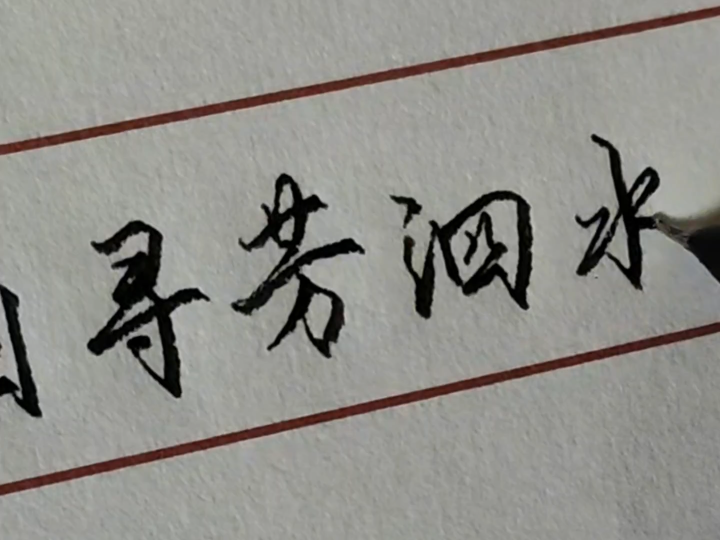 寻芳泗水